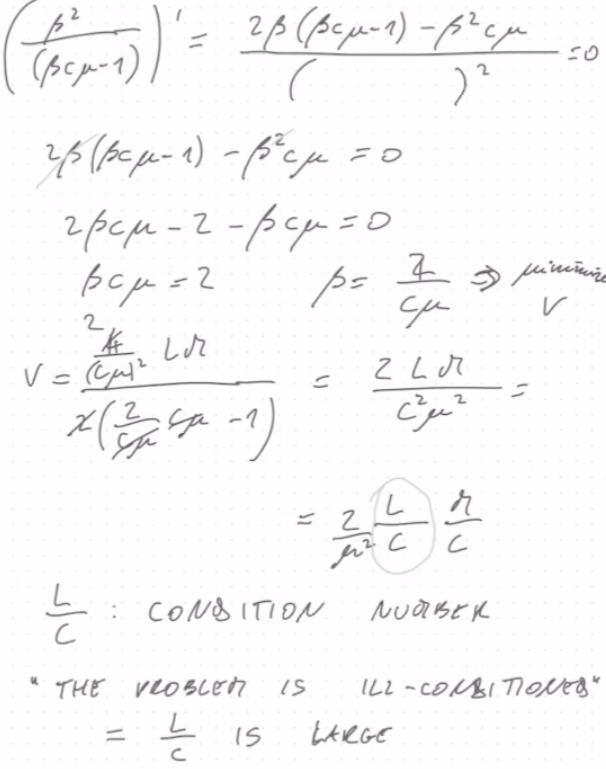 (β² / (βcμ-1))' = (2β(βcμ-1) - β²cμ) / ( )² = 0
2β(βcμ-1) - β²cμ = 0
2βcμ - 2 - βcμ = 0
βcμ = 2 β = 2/(cμ) ⇒ minimize V
V = (4/(cμ)² LM) / (2(2/(cμ) cμ - 1)) = 2LM / (c²μ²) =
= 2/μ² L/C M/C
L/C : CONDITION NUMBER
" THE PROBLEM IS ILL-CONDITIONED"
= L/C IS LARGE